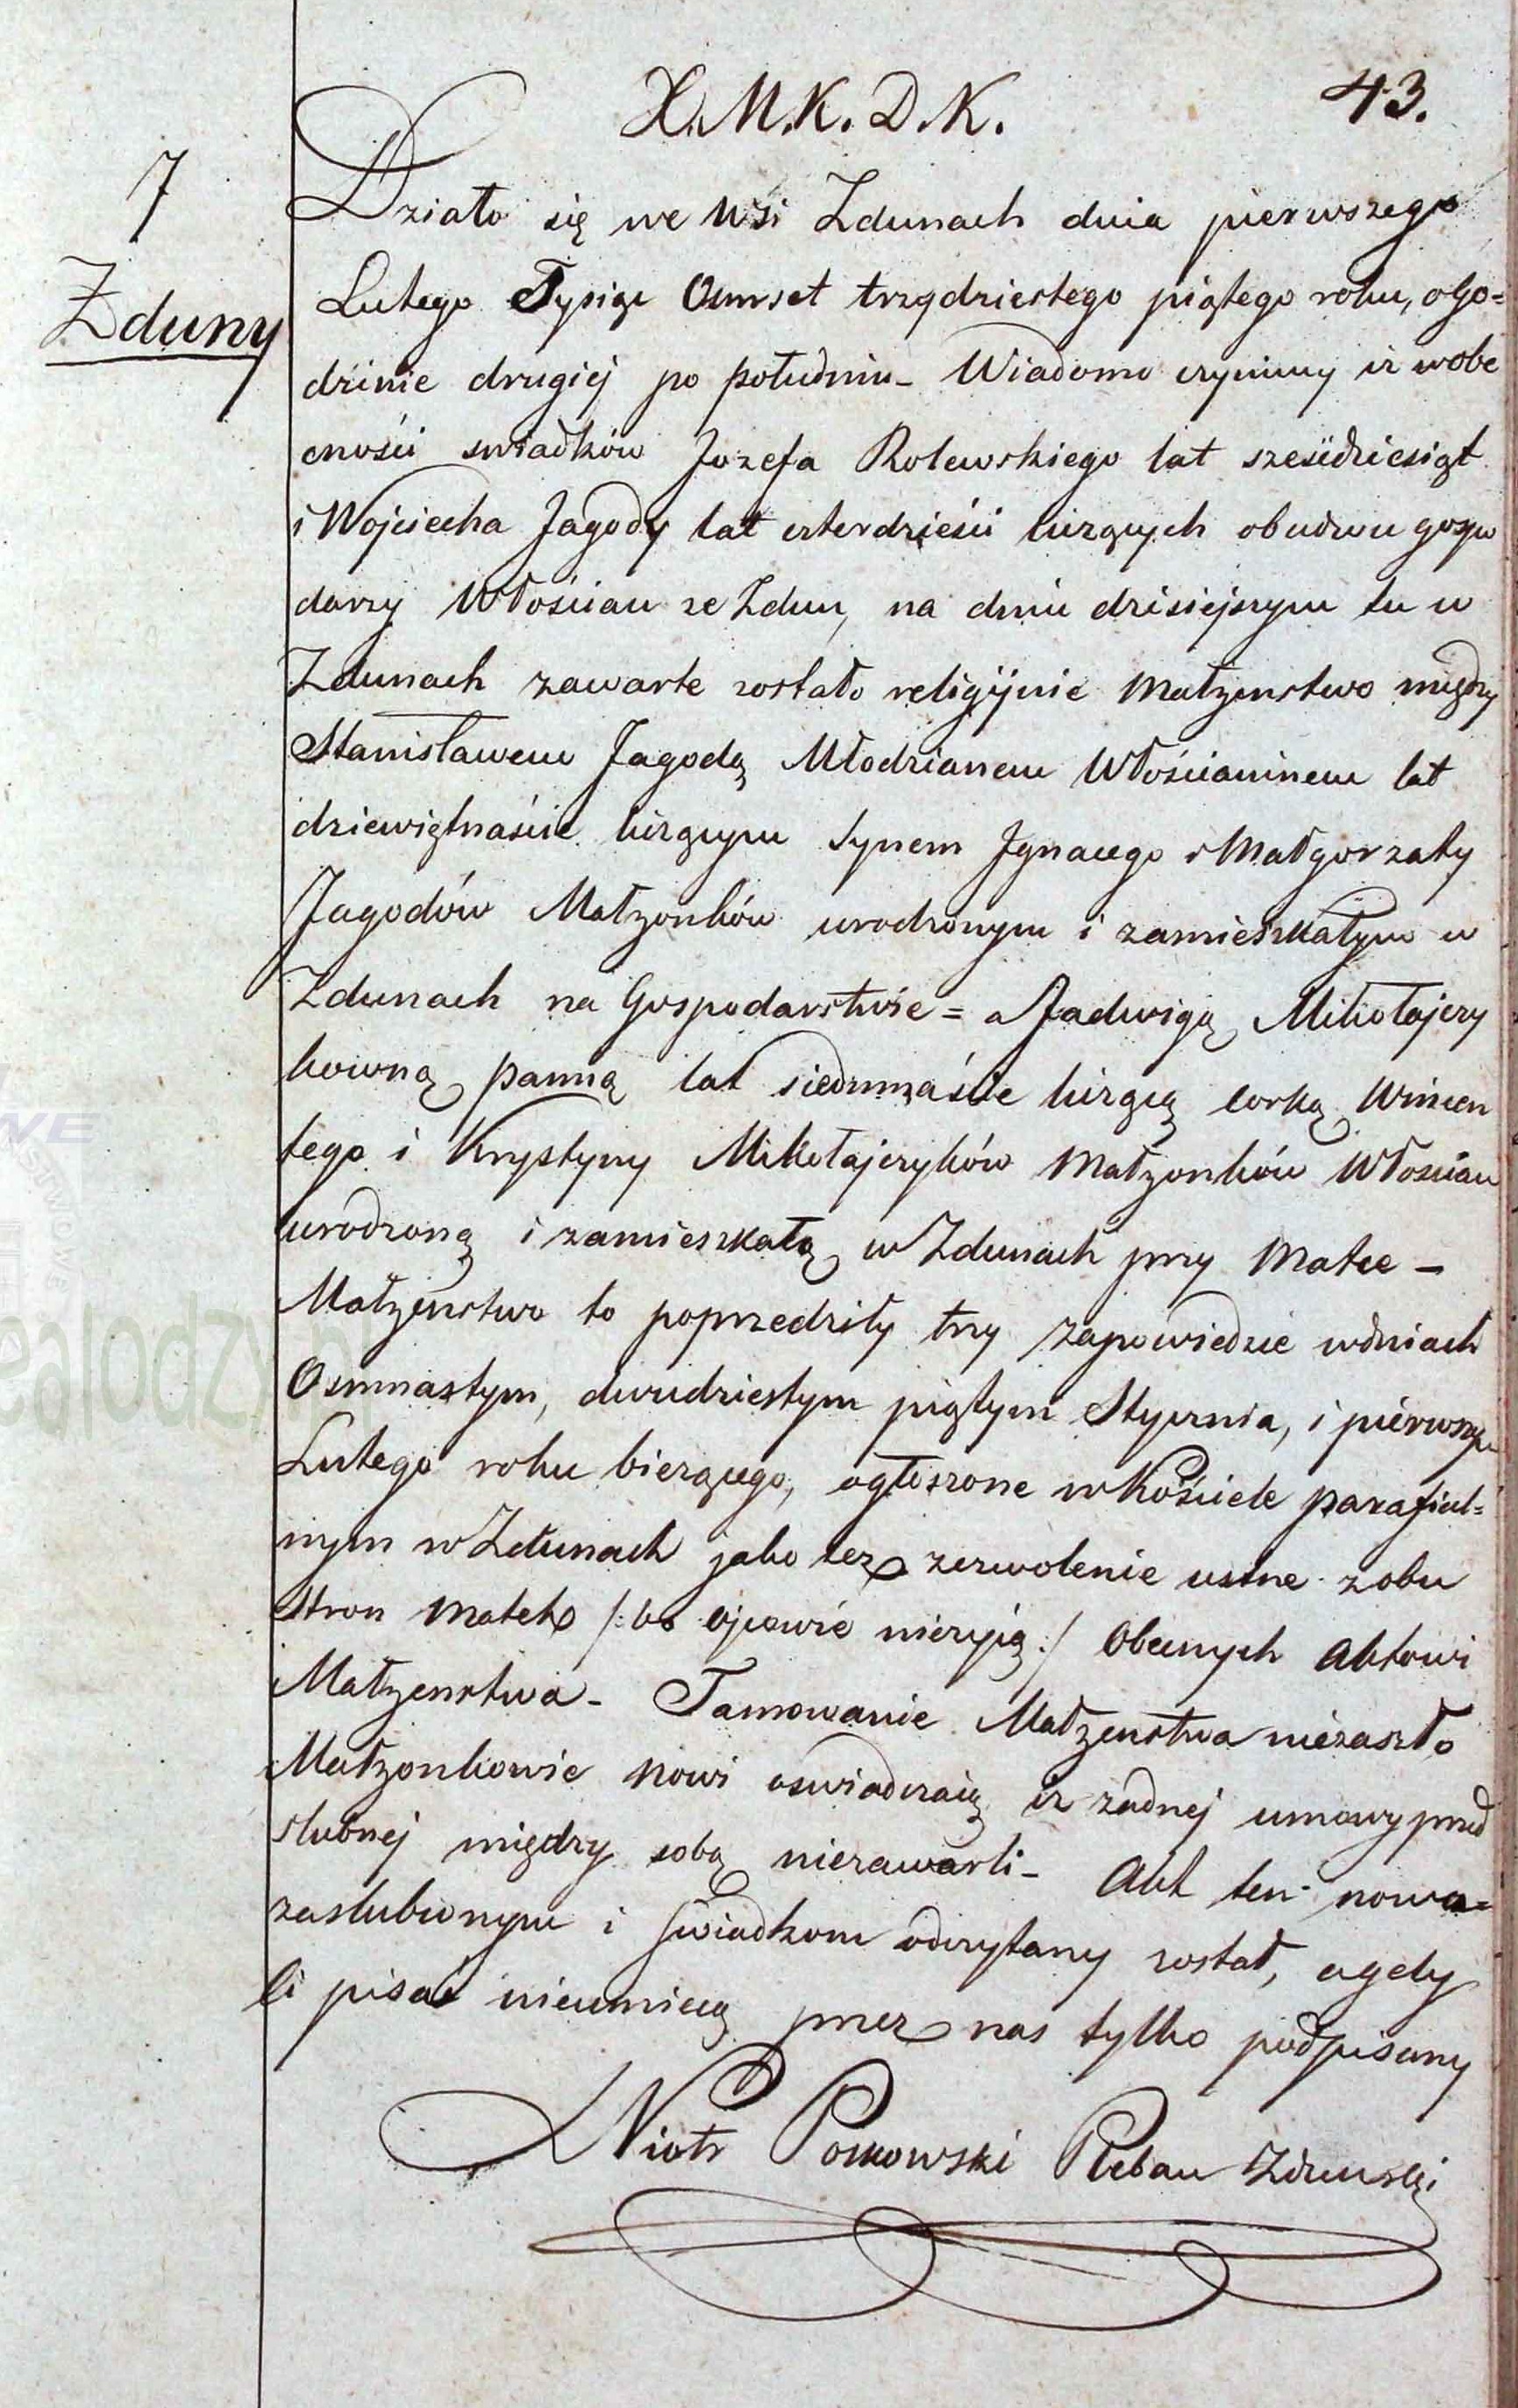 X. M. K. D. K.
43.
7
Zduny
Działo się we Wsi Zdunach dnia pierwszego
Lutego Tysiąc Osmset trzydziestego piątego roku, o Go=
dzinie drugiej po południu – Wiadomo czyniemy iż wobe
cności swiadków Jozefa Rolewskiego lat sześćdziesiąt
i Wojciecha Jagody lat czterdzieści liczących obudwu gospo
darzy Włościan ze Zdun, na dniu dzisiejszym tu w
Zdunach zawarte zostało religijnie Małżenstwo między
Stanisławem Jagodą Młodzianem Włościaninem lat
dziewiętnaście liczącym Synem Jgnacego i Małgorzaty
Jagodów Małżonków urodzonym i zamieszkałym w
Zdunach na Gospodarstwie = a Jadwigą Mikołajczy
kowną panną lat siedmnaście liczącą corką Wincen
tego i Krystyny Mikołajczyków Małżonków Włościan
urodzoną i zamieszkałą w Zdunach przy Matce –
Małżenstwo to poprzedziły trzy zapowiedzie w dniach
Osmnastym, dwudziestym piątym Stycznia, i pierwszym
Lutego roku bieżącego, ogłoszone w Kościele parafial=
nym w Zdunach jako też zezwolenie ustne z obu
Stron Matek /: bo Ojcowie nieżyią :/ Obecnych Aktowi
Małżenstwa – Tamowanie Małżenstwa niezaszło
Małżonkowie Nowi oswiadczaią iż żadnej umowy przed
slubnej między sobą niezawarli – Akt ten nowo=
zaslubionym i swiadkom odczytany został, a gdy
ci pisać nieumieią przez nas tylko podpisany
Piotr Pomowski Pleban Zdunski